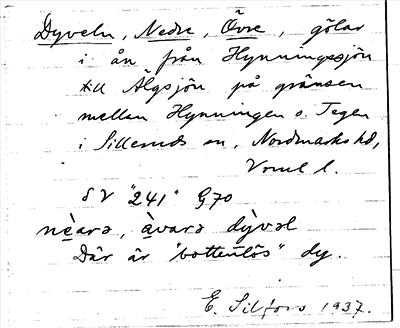 Dyveln, Nedre, Övre, gölar
i ån från Hynningssjön
till Älgsjön på gränsen
mellan Hynningen o. Tegen
i Silleruds sn, Nordmarks hd,
Vrml l.
SV "241" G70
nèara, àvara dỳvəl
Där är "bottenlös" dy.
E. Silfors 1937.